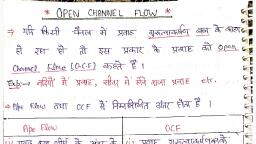 * OPEN CHANNEL FLOW *
⇒ यदि किसी चैनल में प्रवाह गुरुत्वाकर्षण बल के कारण
हो रहा हो तो इस प्रकार के प्रवाह को Open
Channel Flow (OCF) कहते हैं।
Ex:→ नदियों में प्रवाह, सीवर में होने वाला प्रवाह etc.
⇒ Pipe Flow तथा OCF में निम्नलिखित अंतर होता है।
Pipe Flow OCF
(i) प्रवाह